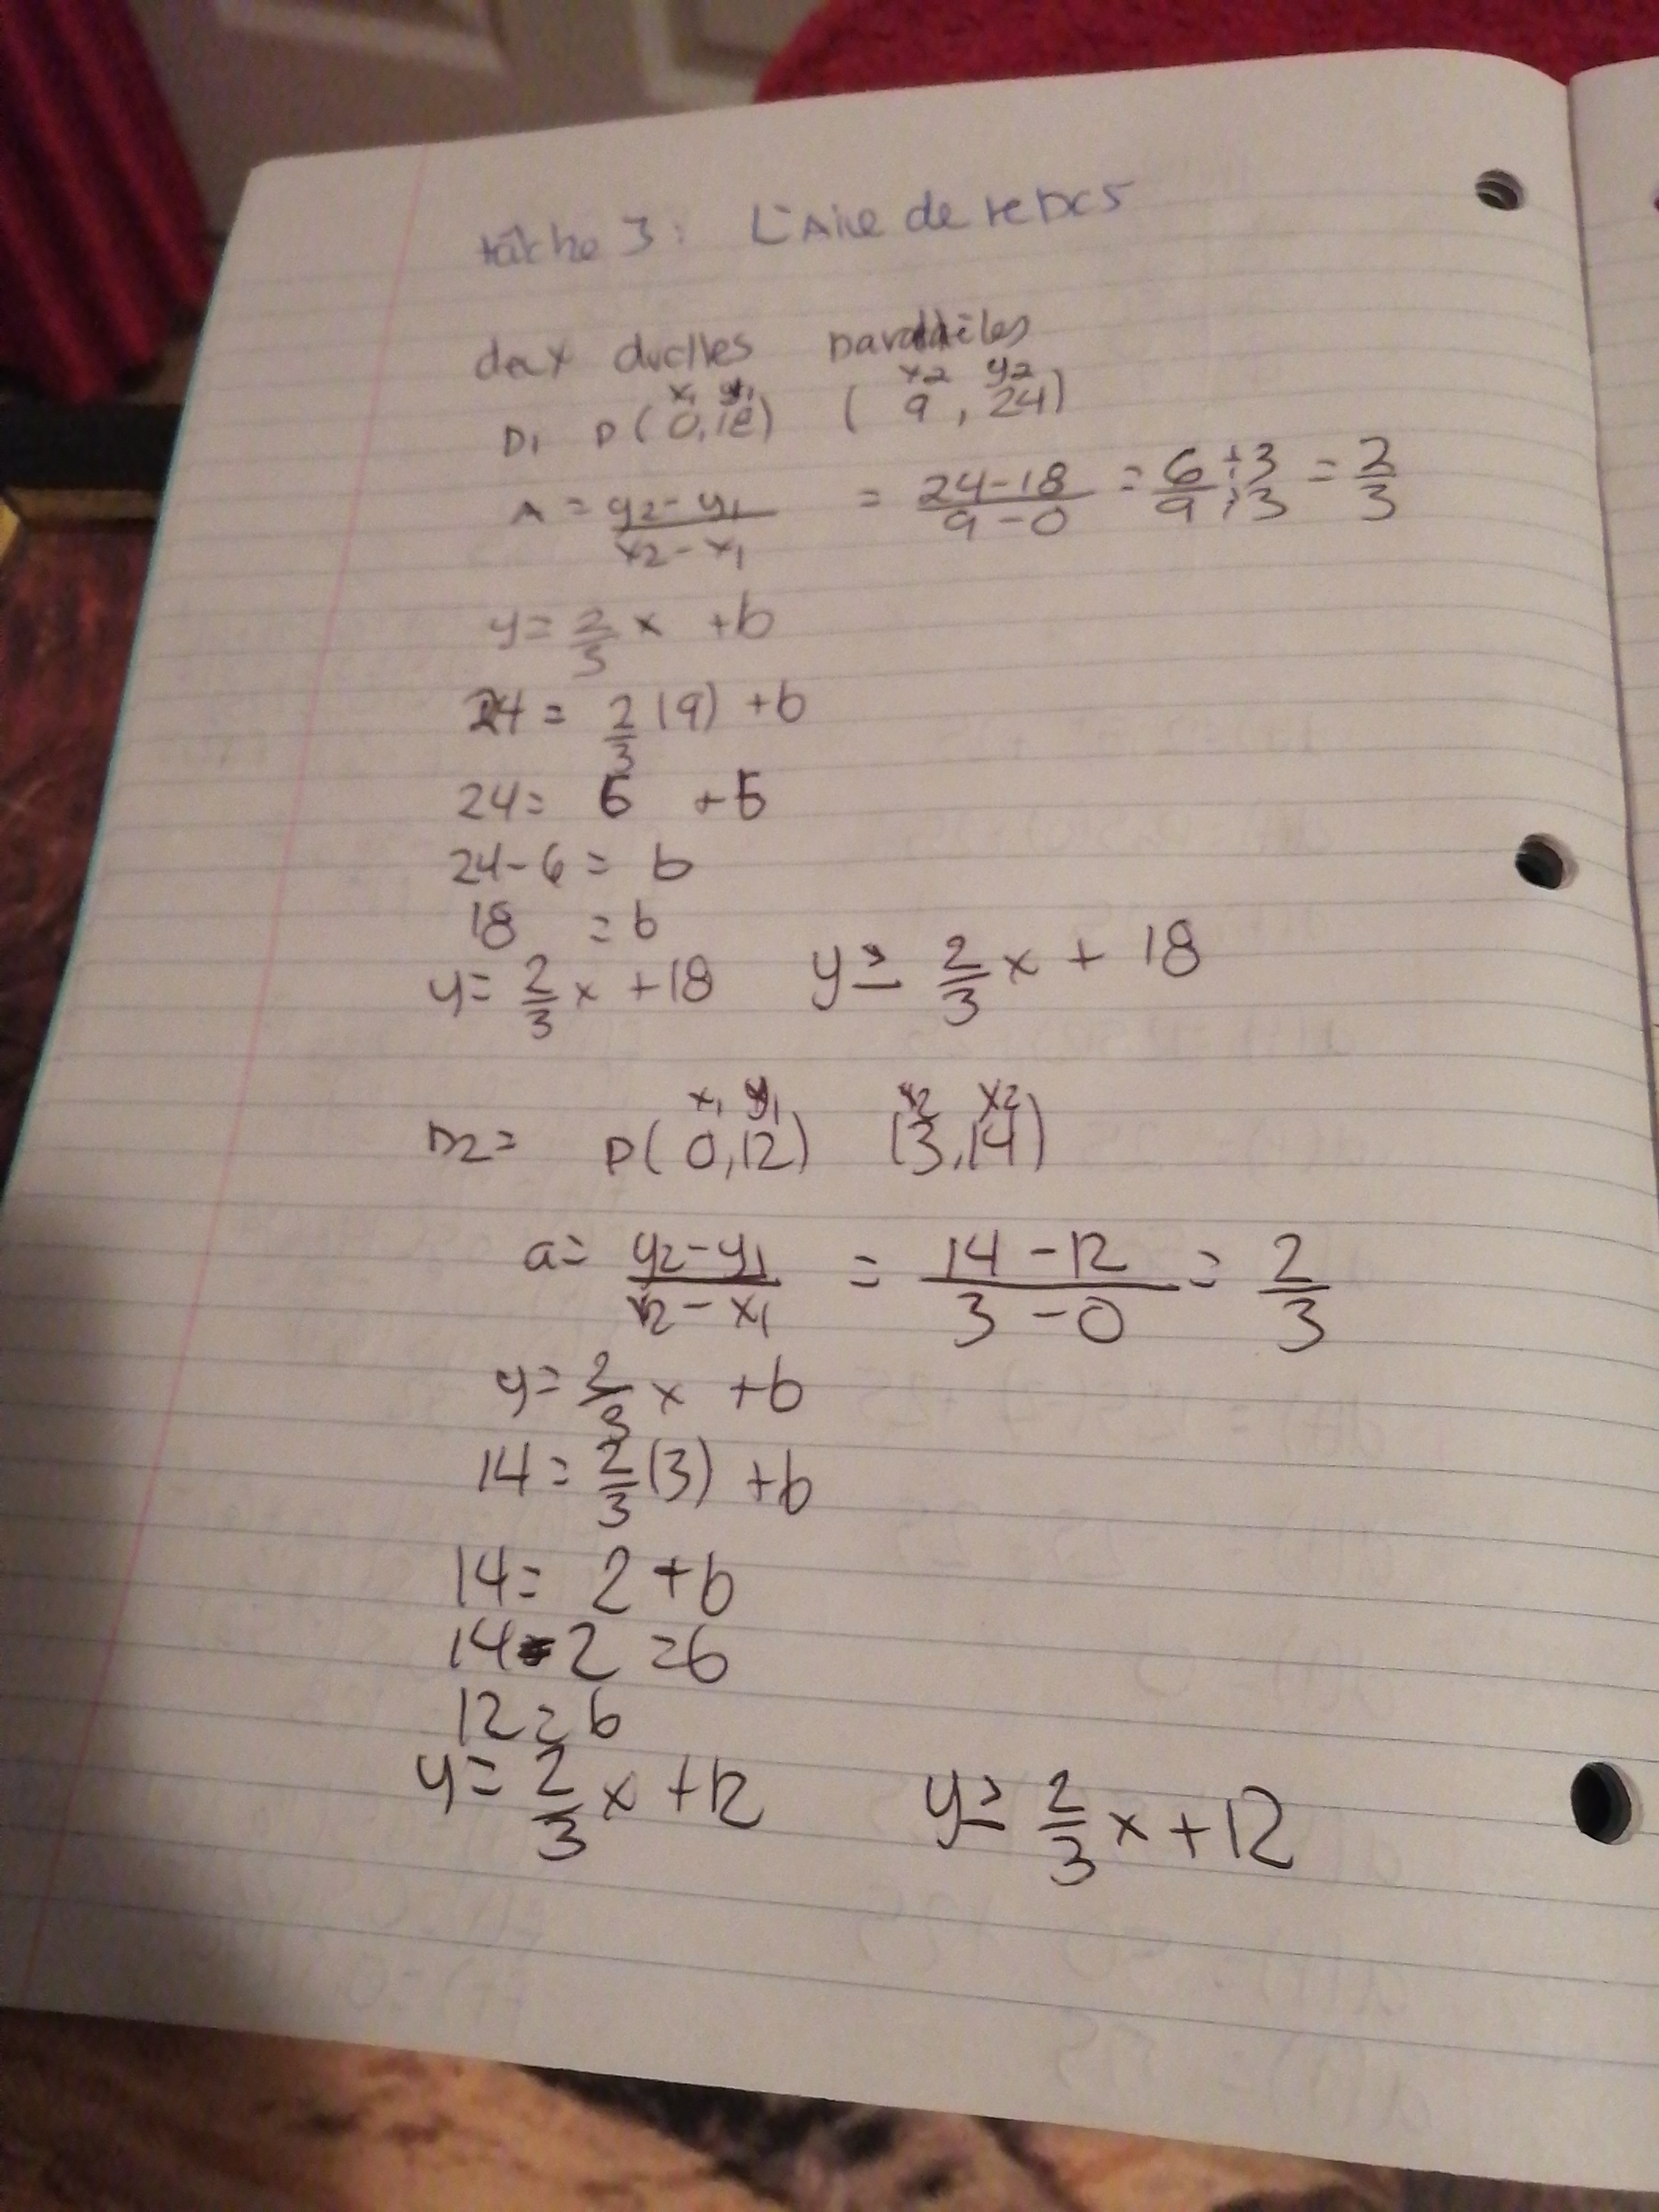 tâche 3: L'Aire de repos
deux droites parallèles
x1 y1 x2 y2
D1 P(0,18) (9,24)
A = y2-y1/x2-x1 = 24-18/9-0 = 6÷3/9÷3 = 2/3
y= 2/3 x +b
24= 2/3 (9) +b
24= 6 +b
24-6= b
18 =b
y= 2/3 x +18 y≥ 2/3 x + 18
x1 y1 x2 x2
D2= P(0,12) (3,14)
a= y2-y1/x2-x1 = 14-12/3-0 = 2/3
y= 2/3 x +b
14= 2/3 (3) +b
14= 2+b
14-2 =b
12=b
y= 2/3 x +12 y≥ 2/3 x+12